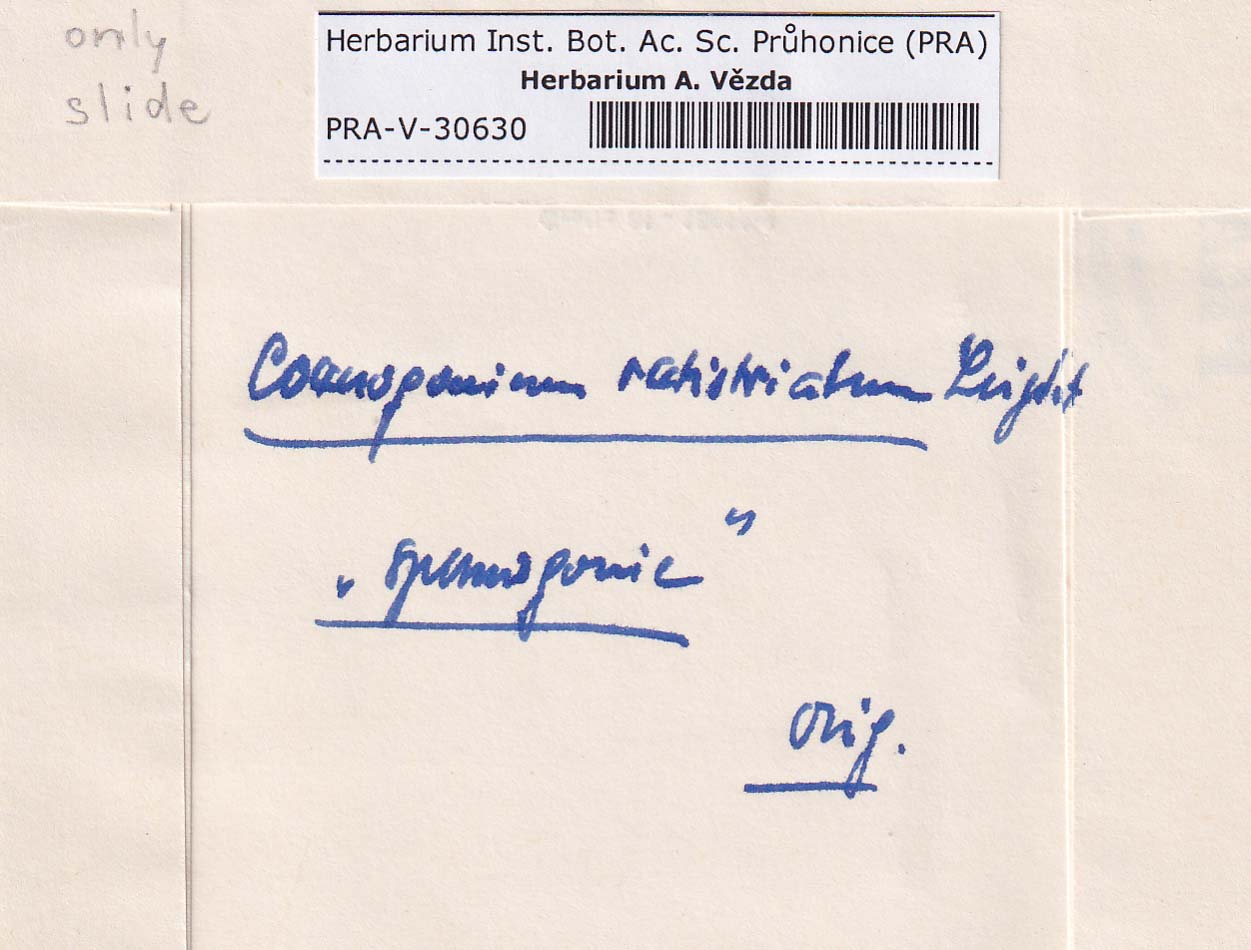 only
slide
Herbarium Inst. Bot. Ac. Sc. Průhonice (PRA)
Herbarium A. Vězda
PRA-V-30630
Coenogonium
„spermogonie“
Orig.